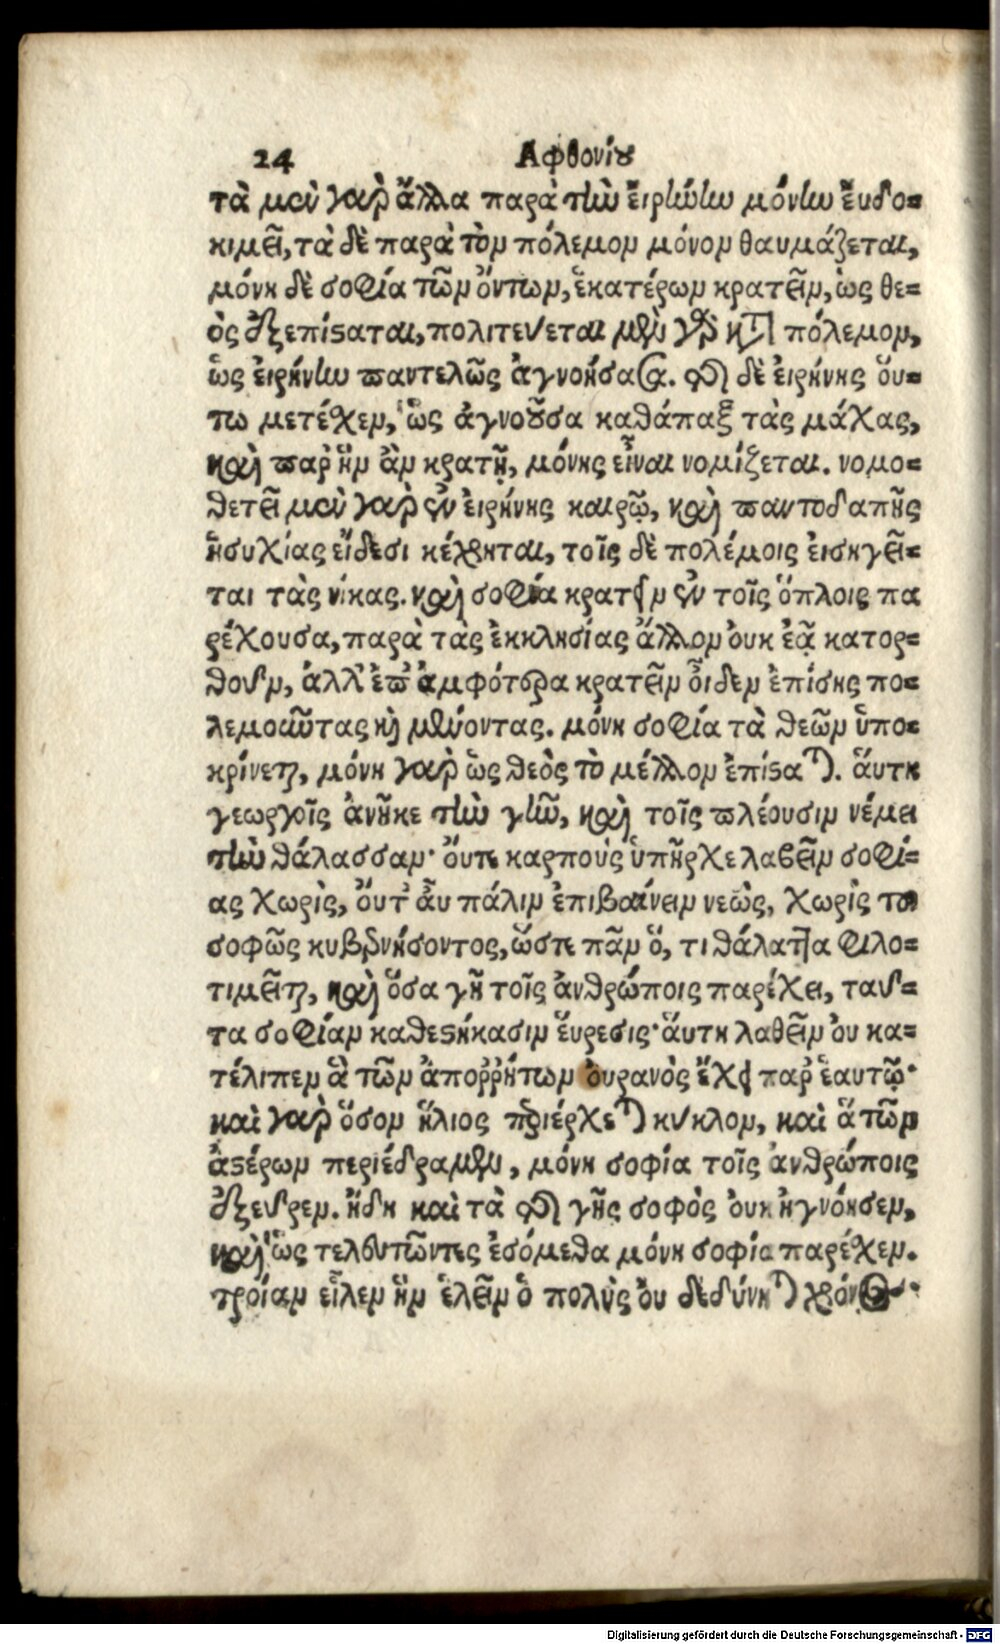 24 Αφθονίου
τὰ μὲν γὰρ ἄλλα παρὰ τὴν ἐιρήνην μόνην ἐυδο-
κιμεῖ, τὰ δὲ παρὰ τὸν πόλεμον μόνον θαυμάζεται,
μόνη δὲ σοφία τῶν ὄντων, ἑκατέρων κρατεῖν, ὡς θε-
ὸς ἐξεπίσταται, πολιτεύεται μὲν γὰρ κατὰ πόλεμον,
ὡς ἐιρήνην παντελῶς ἀγνοήσασα. τῆς δὲ ἐιρήνης ὅυ-
τω μετέχεν, ὡς ἀγνοοῦσα καθάπαξ τὰς μάχας,
καὶ παρ ἣν ἂν κρατῇ, μόνης εἶναι νομίζεται. νομο-
θετεῖ μὲν γὰρ ἐν ἐιρήνης καιρῷ, καὶ παντοδαπῆς
ἡσυχίας εἴδεσι κέχρηται, τοῖς δὲ πολέμοις ἐισηγεῖ-
ται τὰς νίκας. καὶ σοφία κρατεῖν ἐν τοῖς ὅπλοις πα
ρέχουσα, παρὰ τὰς ἐκκλησίας ἄλλον ὀυκ ἐᾷ κατορ-
θοῦν, ἀλλ' ἐπ' ἀμφότερα κρατεῖν οἶδεν ἐπίσης πο-
λεμοῦντας καὶ μένοντας. μόνη σοφία τὰ θεῶν ὑπο-
κρίνεται, μόνη γὰρ ὡς θεὸς τὸ μέλλον ἐπίσταται. ἅυτη
γεωργοῖς ἀνῆκε τὴν γῆν, καὶ τοῖς πλέουσιν νέμει
τὴν θάλασσαν· ὄυτε καρποὺς ὑπῆρχε λαβεῖν σοφί-
ας χωρὶς, ὄυτ' ἀυ πάλιν ἐπιβαίνειν νεὼς, χωρὶς τοῦ
σοφῶς κυβερνήσοντος, ὥστε πᾶν ὅ, τι θάλαττα φιλο-
τιμεῖται, καὶ ὅσα γῆ τοῖς ἀνθρώποις παρέχει, ταῦ-
τα σοφίαν καθεστήκασιν ἕυρεσις· ἅυτη λαθεῖν ὀυ κα-
τέλιπεν ἃ τῶν ἀπορρήτων ὀυρανὸς ἔχει παρ ἑαυτῷ·
καὶ γὰρ ὅσον ἥλιος περιέρχεται κύκλον, καὶ ἅ τῶν
ἀστέρων περιέδραμεν, μόνη σοφία τοῖς ἀνθρώποις
ἐξεῦρεν. ἤδη καὶ τὰ τῆς γῆς σοφὸς ὀυκ ἠγνόησεν,
καὶ ὡς τελευτῶντες ἐσόμεθα μόνη σοφία παρέχεν.
τροίαν εἷλεν ἣν ἑλεῖν ὁ πολὺς ὀυ δεδύνηται χρόνος·